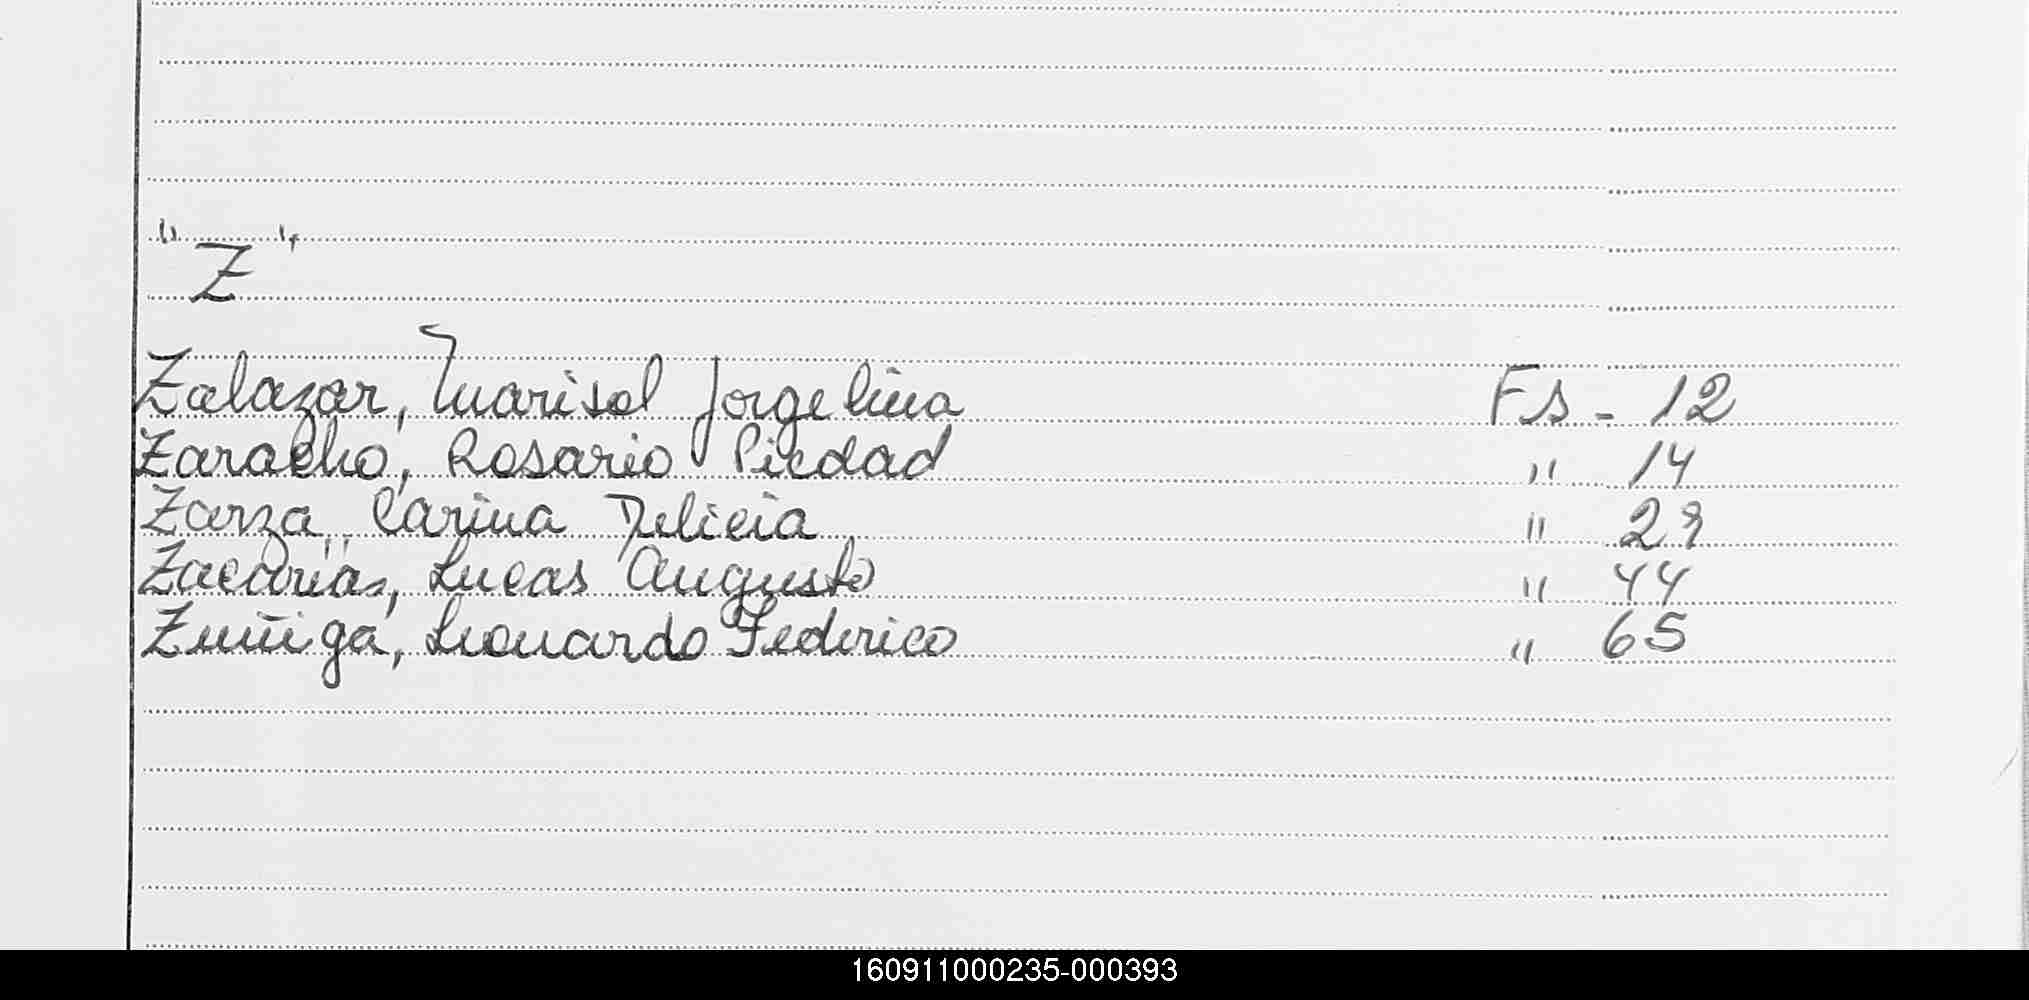 "Z"
Zalazar, Marisol Jorgelina Fs - 12
Zaracho, Rosario Piedad " 14
Zarza, Carina Delicia " 29
Zacarias, Lucas Augusto " 44
Zuñiga, Leonardo Federico " 65
160911000235-000393